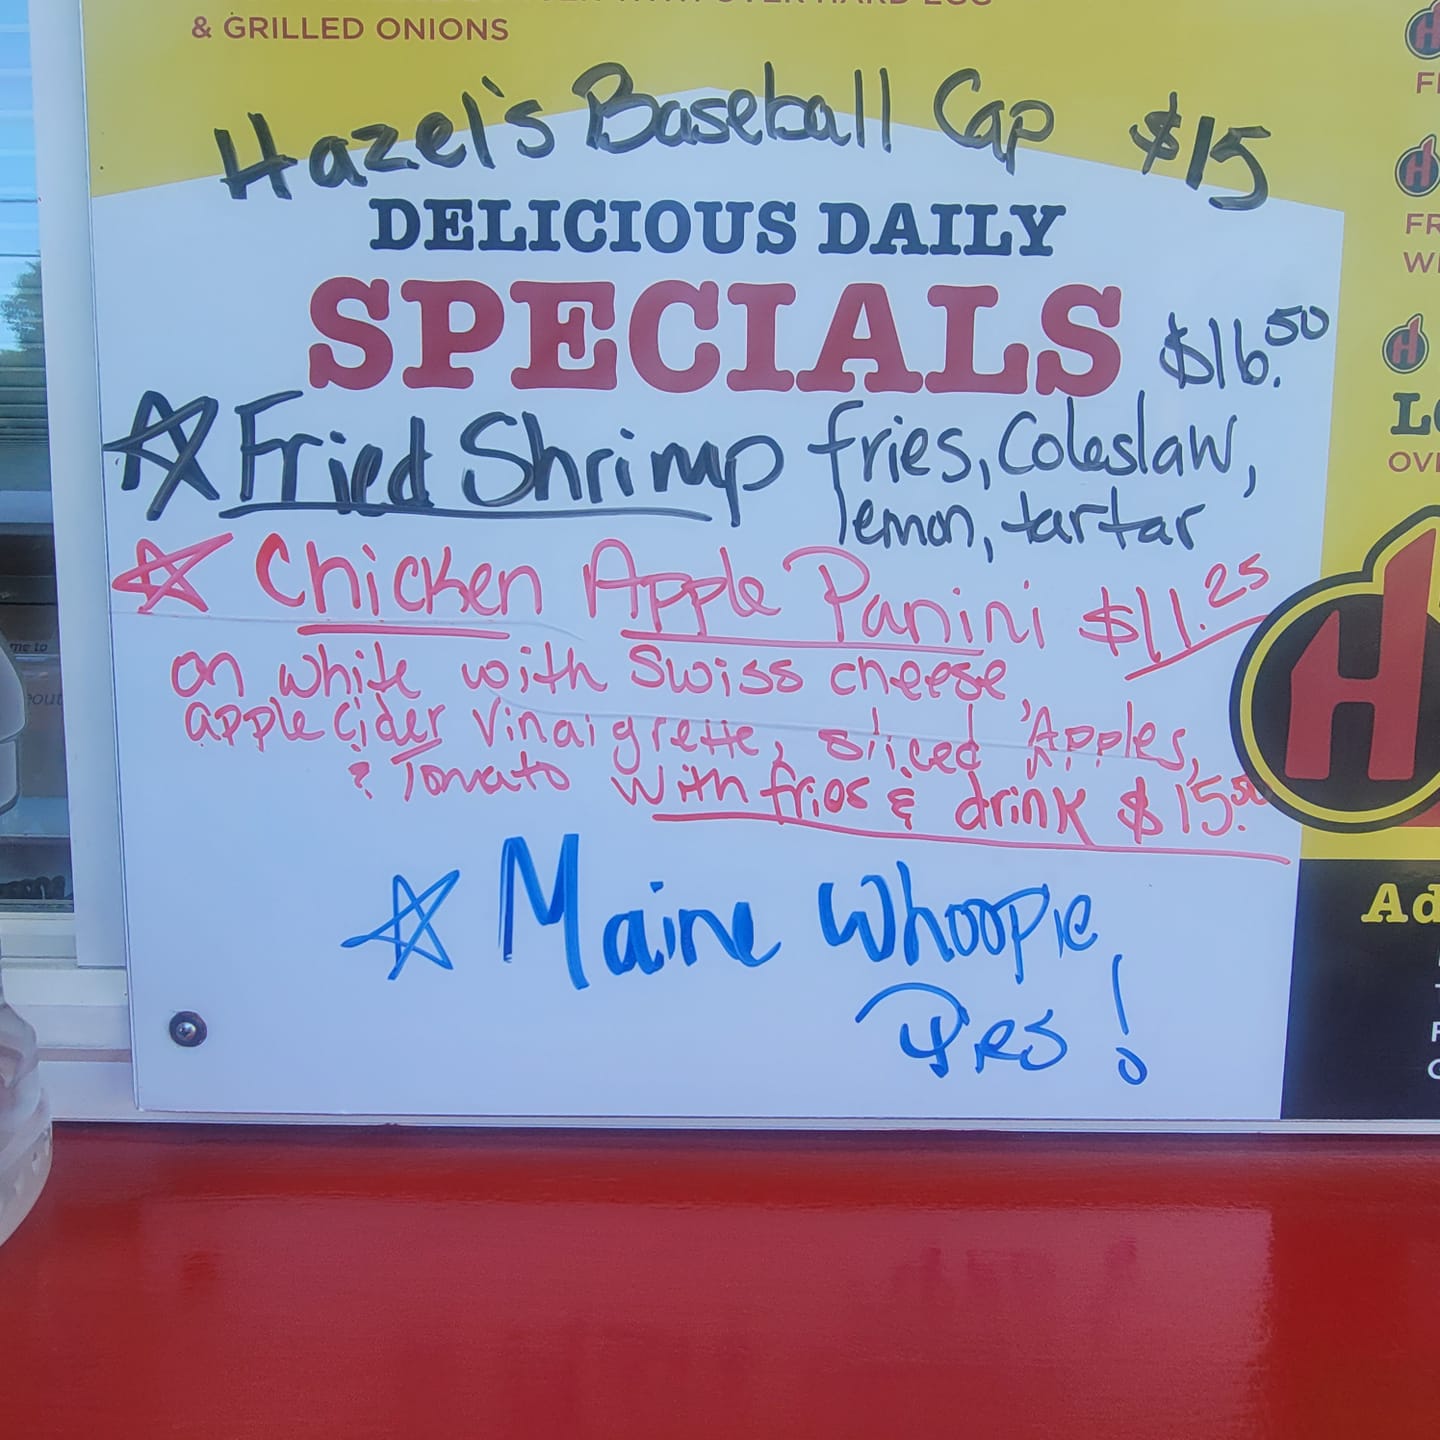 & GRILLED ONIONS
Hazel's Baseball Cap $15
DELICIOUS DAILY
SPECIALS $16.50
Fried Shrimp fries, Coleslaw,
lemon, tartar
Chicken Apple Panini $11.25
on white with Swiss cheese,
apple cider vinaigrette, sliced Apples,
& Tomato with fries & drink $15.50
Maine Whoopie
Pies!